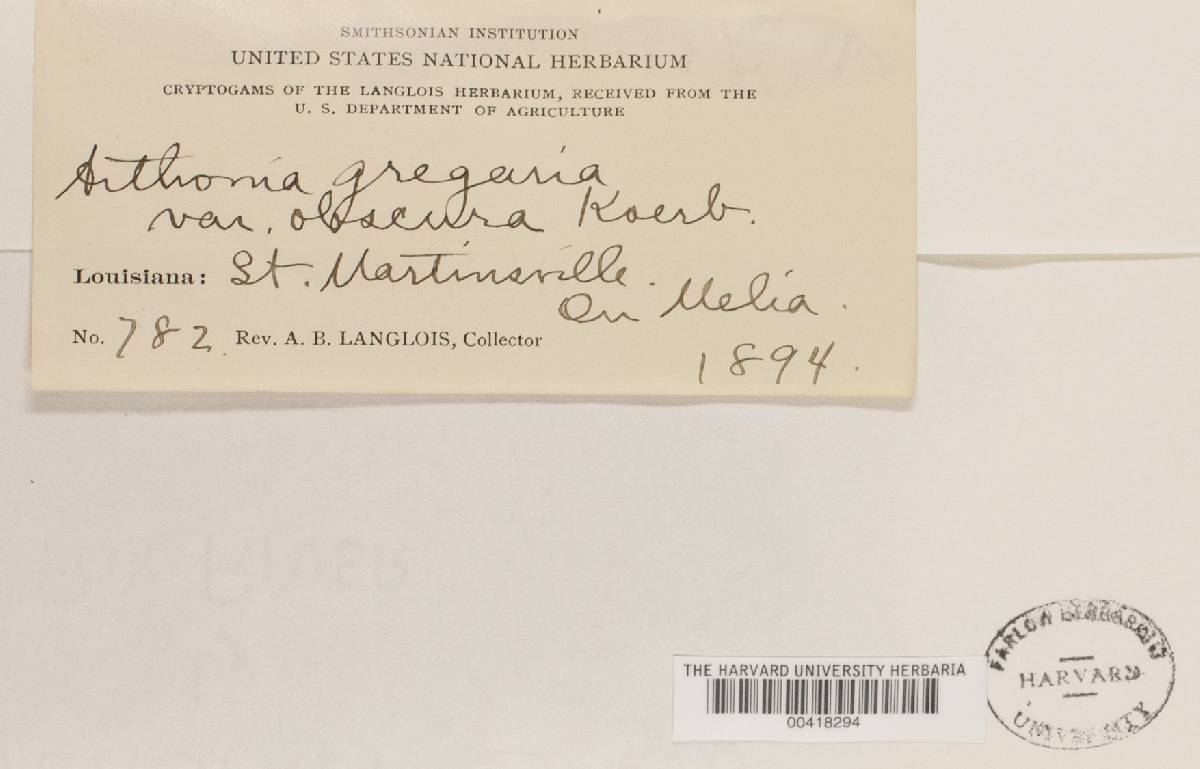 SMITHSONIAN INSTITUTION
UNITED STATES NATIONAL HERBARIUM
CRYPTOGAMS OF THE LANGLOIS HERBARIUM, RECEIVED FROM THE
U. S. DEPARTMENT OF AGRICULTURE
Arthonia gregaria
var. obscura Koerb.
Louisiana: St. Martinsville.
On Melia.
No. 782 Rev. A. B. LANGLOIS, Collector
1894.
THE HARVARD UNIVERSITY HERBARIA
00418294
FARLOW HERBARIUM
HARVARD
UNIVERSITY